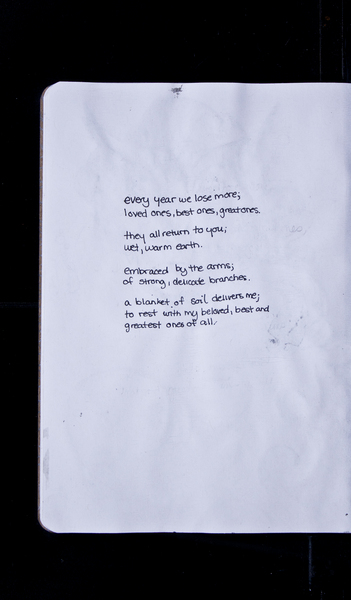 every year we lose more;
loved ones, best ones, great ones.
they all return to you;
wet, warm earth.
embraced by the arms;
of strong, delicate branches.
a blanket of soil delivers me;
to rest with my beloved, best and
greatest ones of all.